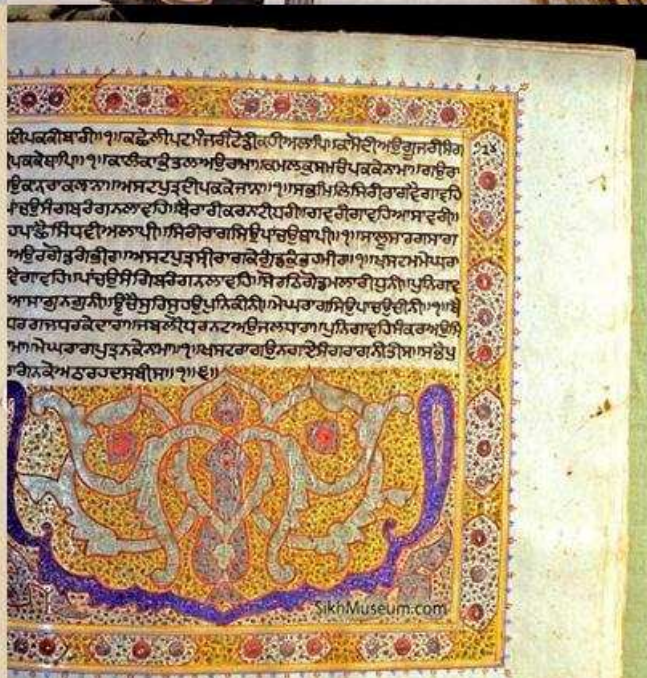 ਦੀਪਕਕੀਬਾਰੀ॥੧॥ਕਛੇਲੀਪਟਮੰਜਰੀਟੋਡੀਕਹੀਅਲਾਪਿ॥ਕਾਮੋਦੀਅਉਗੂਜਰੀਸੰਗਿ
ਦੀਪਕਕੇਥਾਪਿ॥੧॥ਕਾਲੰਕਾਕੁੰਤਲਅਉਰਾਮਾ॥ਕਮਲਕੁਸਮਚੰਪਕਕੇਨਾਮਾ॥ਗਉਰਾ
ਅਉਕਾਨਰਾਕਲੵਾਨਾ॥ਅਸਟਪੁਤ੍ਰਦੀਪਕਕੇਜਾਨਾ॥੧॥ਸਭਮਿਲਿਸਿਰੀਰਾਗਵੈਗਾਵਹਿ
ਪਾਂਚਉਸੰਗਿਬਰੰਗਨਲਾਵਹਿ॥ਬੈਰਾਰੀਕਰਨਾਟੀਧਰੀ॥ਗਵਰੀਗਾਵਹਿਆਸਾਵਰੀ॥
ਤਿਹਪਾਛੈਸਿੰਧਵੀਅਲਾਪੀ॥ਸਿਰੀਰਾਗਸਿਉਪਾਂਚਉਥਾਪੀ॥੧॥ਸਾਲੂਸਾਰਗਸਾਗ
ਅਉਰਗੋਂਡਗੰਭੀਰ॥ਅਸਟਪੁਤ੍ਰਸ੍ਰੀਰਾਗਕੇਗੁੰਡਕੁੰਭਹਮੀਰ॥੧॥ਖਸਟਮਮੇਘਰਾਗ
ਵੈਗਾਵਹਿ॥ਪਾਂਚਉਸੰਗਿਬਰੰਗਨਲਾਵਹਿ॥ਸੋਰਠਿਗੋਂਡਮਲਾਰੀਧੁਨੀ॥ਪੁਨਿਗਾਵ
ਆਸਾਗੁਨਗੁਨੀ॥ਊਚੈਸੁਰਿਸੂਹਉਪੁਨਿਕੀਨੀ॥ਮੇਘਰਾਗਸਿਉਪਾਂਚਉਚੀਨੀ॥੧॥ਬੈ
ਧਰਗਜਧਰਕੇਦਾਰਾ॥ਜਬਲੀਧਰਨਟਅਉਜਲਧਾਰਾ॥ਪੁਨਿਗਾਵਹਿਸੰਕਰਅਉਸਿ
ਆਮਾ॥ਮੇਘਰਾਗਪੁਤ੍ਰਨਕੇਨਾਮਾ॥੧॥ਖਸਟਰਾਗਉਨਿਗਾਏਸੰਗਿਰਾਗਨੀਤੀਸ॥ਸਭੈਪੁ
ਰਾਗੰਨਕੇਅਠਾਰਹਦਸਬੀਸ॥੧॥੧॥
SikhMuseum.com